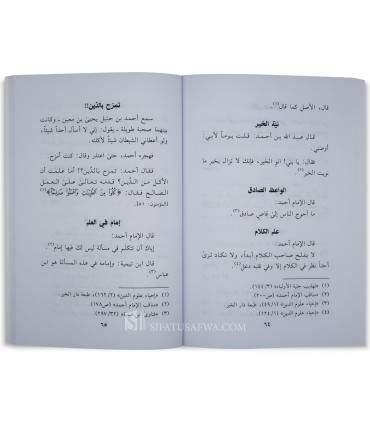 قال، الأصل كما قال(١).
نية الخير
قال عبد الله بن أحمد: قلت يوماً لأبي:
أوصني.
فقال: يا بني! انو الخير، فإنك لا تزال بخير ما
نويت الخير(٢).
الواعظ الصادق
قال الإمام أحمد:
ما أحوج الناس إلى قاصٍّ صادق(٣).
علم الكلام
قال الإمام أحمد:
لا يفلح صاحب الكلام أبداً، ولا تكاد ترى
أحداً نظر في الكلام إلا وفي قلبه دغل(٤).
(١) «تهذيب حلية الأولياء» (١٤٤/٣).
(٢) «مناقب الإمام أحمد» (ص٢٠٠).
(٣) «إحياء علوم الدين» (٤٩/١)، طبعة دار الخير.
(٤) «إحياء علوم الدين» (١٢٤/١).
٦٤
تمزح بالدين!!
سمع أحمد بن حنبل يحيى بن معين ـ وكانت
بينهما صحبة طويلة ـ يقول: إني لا أسأل أحداً شيئاً،
ولو أعطاني الشيطان شيئاً لأكلته.
فهجره أحمد، حتى اعتذر وقال: كنت أمزح.
فقال أحمد: تمزح بالدين؟! أما علمت أن
الأكل من الدين؟ قدمه تعالى على العمل
الصالح فقال: ﴿كُلُوا مِنَ الطَّيِّبَاتِ وَاعْمَلُوا صَالِحًا﴾(١)
[المؤمنون: ٥١].
إمام في العلم
قال الإمام أحمد:
إياك أن تتكلم في مسألة ليس لك فيها إمام(٢).
قال ابن تيمية: وإمامه في هذه المسألة هو ابن
عباس(٣).
(١) «إحياء علوم الدين» (١٦٢/٢)، طبعة دار الخير.
(٢) «مناقب الإمام أحمد» (ص١٧٨).
(٣) (٢٩٧/٣٢).
٦٥
SIFATUSAFWA.COM